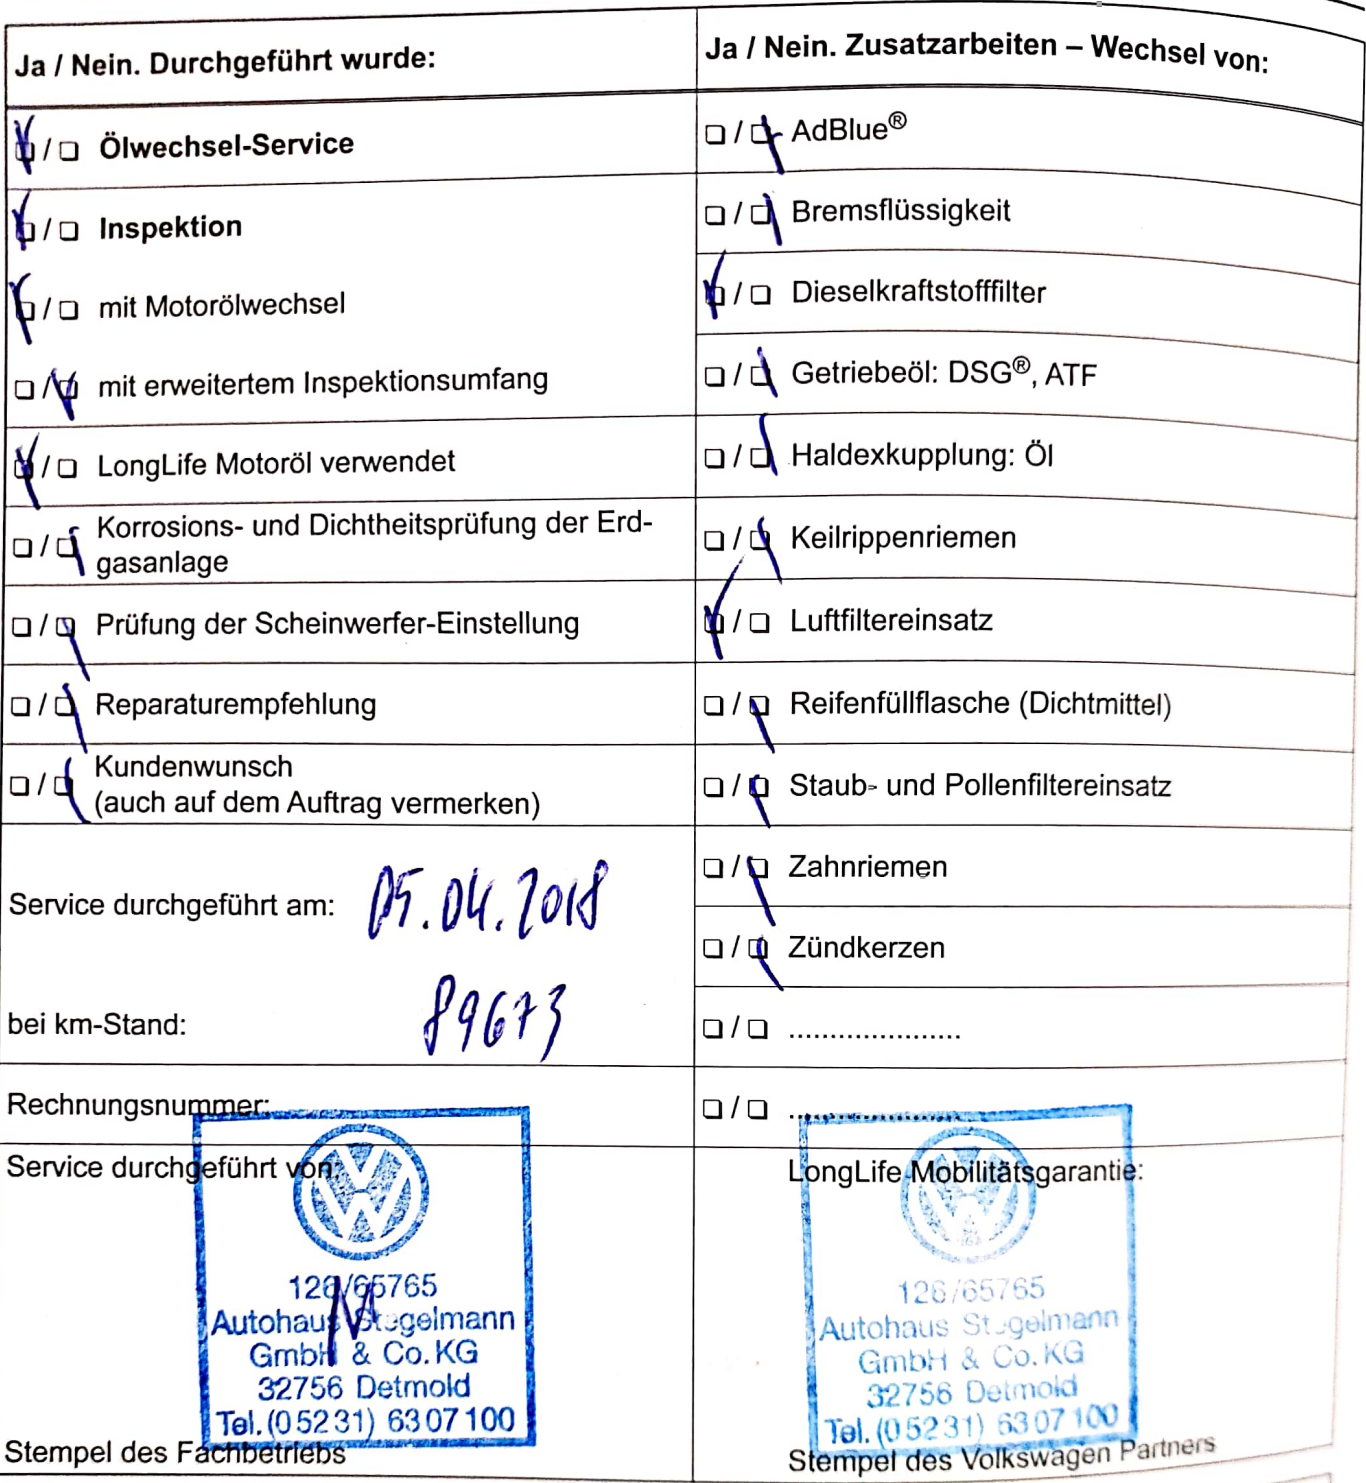 Ja / Nein. Durchgeführt wurde:
☑ / ☐ Ölwechsel-Service
☑ / ☐ Inspektion
☑ / ☐ mit Motorölwechsel
☐ / ☑ mit erweitertem Inspektionsumfang
☑ / ☐ LongLife Motoröl verwendet
☐ / ☑ Korrosions- und Dichtheitsprüfung der Erd-
gasanlage
☐ / ☑ Prüfung der Scheinwerfer-Einstellung
☐ / ☑ Reparaturempfehlung
☐ / ☑ Kundenwunsch
(auch auf dem Auftrag vermerken)
Service durchgeführt am: 05.04.2018
bei km-Stand: 89673
Rechnungsnummer:
Service durchgeführt von:
126/65765
Autohaus Stegelmann
GmbH & Co. KG
32756 Detmold
Tel. (05231) 6307100
Stempel des Fachbetriebs
Ja / Nein. Zusatzarbeiten – Wechsel von:
☐ / ☑ AdBlue®
☐ / ☑ Bremsflüssigkeit
☑ / ☐ Dieselkraftstofffilter
☐ / ☑ Getriebeöl: DSG®, ATF
☐ / ☑ Haldexkupplung: Öl
☐ / ☑ Keilrippenriemen
☑ / ☐ Luftfiltereinsatz
☐ / ☑ Reifenfüllflasche (Dichtmittel)
☐ / ☑ Staub- und Pollenfiltereinsatz
☐ / ☑ Zahnriemen
☐ / ☑ Zündkerzen
☐ / ☐ .....................
☐ / ☐ .....................
LongLife Mobilitätsgarantie:
126/65765
Autohaus Stegelmann
GmbH & Co. KG
32756 Detmold
Tel. (05231) 6307100
Stempel des Volkswagen Partners